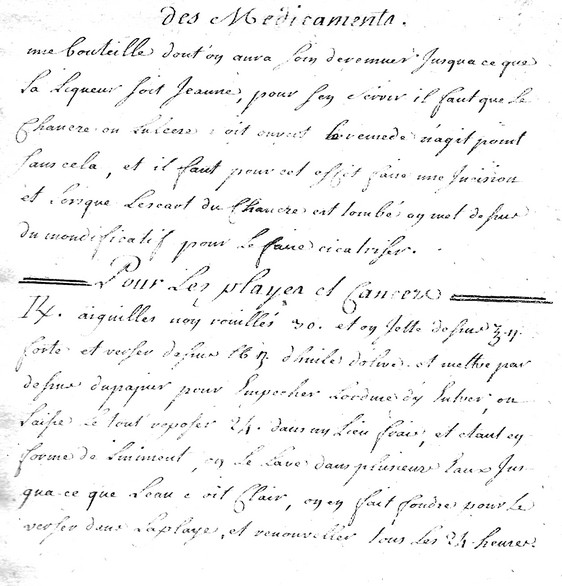 des Medicaments.
une bouteille dont'on aura soin deremuer Jusquace que
La Liqueur soit Jeaune, pour sen servir il faut que Le
Chancre ou Lulcere soit ouvert Leremede n'agit point
sans cela, et il faut pour cet effet faire une Jncision
et Lorsque Lescart du Chancre est tombé on met dessus
du mondificatif pour Le faire cicatriser.
Pour Les playes et Cancers
aiguilles non rouillés 30. et on Jette dessus
forte et verser dessus 16 d'huile dolive. et mettre par
dessus dupapier pour Empecher Lordure dy Entrer, on
Laisse Le tout reposer 24. dans un Lieu frais, et etant en
forme de Liniment, on Le Lave dans plusieurs Eaux Jus
qua-ce que Leau soit Clair, on en fait fondre pour Le
verser dans Laplaye, et renouveller tous Les 24 heures.